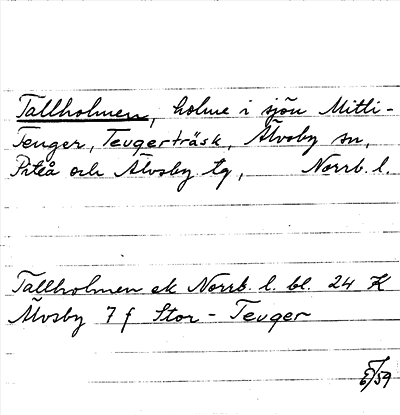 Tallholmen, holme i sjön Mitti-
Teuger, Teugerträsk, Älvsby sn,
Piteå och Älvsby tg, Norrb. l.
Tallholmen ek Norrb. l. bl. 24 K
Älvsby 7 f Stor-Teuger
/59